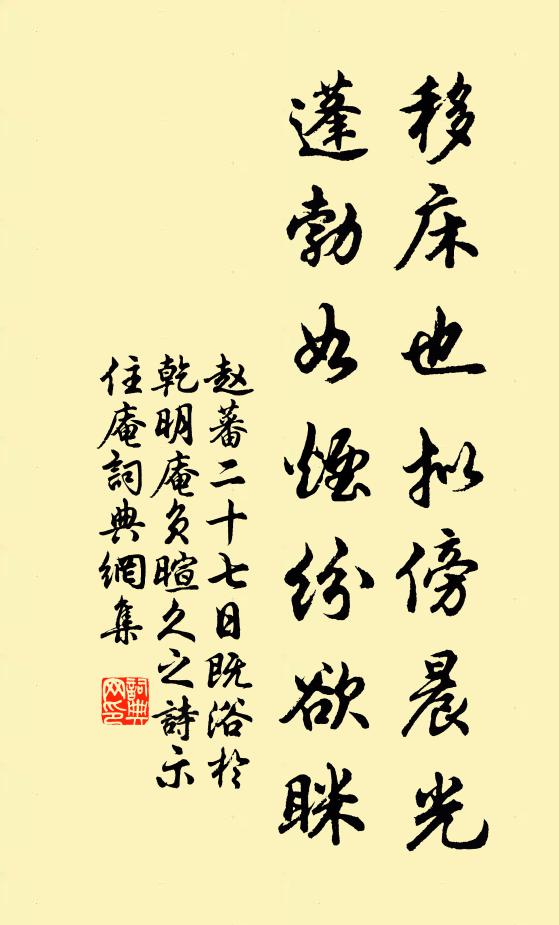 移床也拟傍晨光
蓬勃如煙纷欲眯
赵蕃二十七日既浴於
乾明庵负暄久之詩示
住庵詞典網集
詞典网印